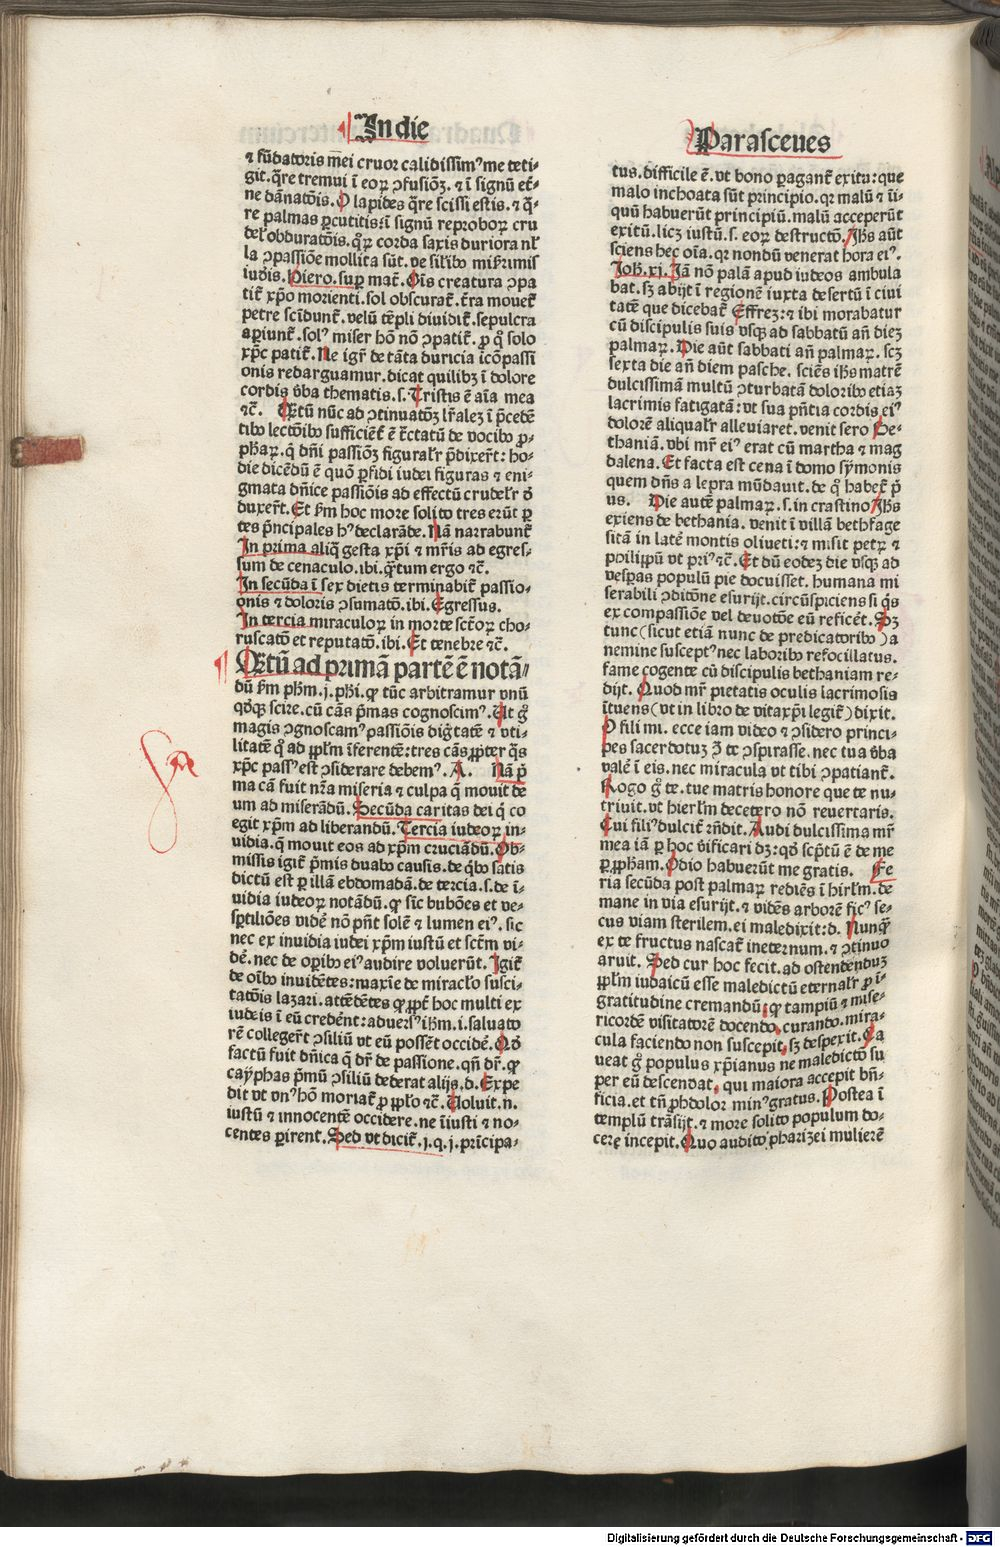 In die
⁊ fūdatoris mei cruor calidissimꝰ me teti-
git. q̄re tremui ī eoꝝ ꝯfusiōꝫ. ⁊ ī signū et̄-
ne dānatōis. O lapides q̄re scissi estis. ⁊ q̄-
re palmas ꝑcutitis: ī signū reproboꝝ cru
del̄ obduratōis. qꝝ corda saxis duriora nl̄
la ꝯpassiōe mollita sūt. ve silībꝰ mikrimis
iudīs. Piero. suꝑ mat̄. Oīs creatura ꝯpa
tit̄ xp̄o morienti. sol obscurat̄. t̄ra mouet̄
petre scīdunt̄. velū tēpli diuidit̄. sepulcra
aꝑiunt̄. solꝰ miser hō nō ꝯpatit̄. ꝓ q̊ solo
xp̄c patit̄. Ne igr̄ de tāta duricia icōpassi
onis redarguamur. dicat quilibꝫ ī dolore
cordis v̄ba thematis. s. Tristis ē aīa mea
⁊c̄. Qētū nūc ad ꝯtinuatōꝫ lr̄alez ī p̄cedē
tibꝰ lectōibꝰ sufficiēt̄ ē t̄ctatū de vocibꝰ ꝓ-
phaꝝ. q̄ dn̄i passiōꝫ figuralr̄ p̄dixer̄t: ho-
die dicēdū ē quō ꝑfidi iudei figuras ⁊ eni-
gmata dn̄ice passiōis ad effectū crudelr̄ ꝺ
duxer̄t. Et ẜm hoc more solito tres erūt ꝑ
tes p̄ncipales hꝰ declarāde. Nā narrabunt̄
In prima aliq̄ gesta xp̄i ⁊ mr̄is ad egres-
sum de cenaculo. ibi. q̄tum ergo ⁊c̄.
In secūda ī sex dietis terminabit̄ passio-
onis ⁊ doloris ꝯsumatō. ibi. Egressus.
In tercia miraculoꝝ in morte sct̄oꝝ cho-
ruscatō et reputatō. ibi. Et tenebre ⁊c̄.
Qētū ad primā partē ē notā-
dū ẜm phm̄. j. phi. ꝙ tūc arbitramur vnū
qd̄qꝫ scire. cū cās p̄mas cognoscimꝰ. Ut g̊
magis ꝯgnoscamꝰ passiōis diḡtatē ⁊ vti-
litatē q̄ ad ppl̄m īferentē: tres cās ꝓpter q̄s
xp̄c passꝰ est ꝯsiderare debemꝰ. A. Nā p̄
ma cā fuit nr̄a miseria ⁊ culpa q̄ mouit de
um ad miserādū. Secūda caritas dei q̄ co
egit xp̄m ad liberandū. Tercia iudeoꝝ in-
vidia. q̄ mouit eos ad xp̄m cruciādū. Ob-
missis igit̄ p̄mis duabꝰ causis. de q̄bꝰ satis
dictū est ꝑ illā ebdomadā. de tercia. s. de ī-
vidia iudeoꝝ notādū. ꝙ sic bubōes et ve-
sꝑtiliōes vidē nō pn̄t solē ⁊ lumen eiꝰ. sic
nec ex inuidia iudei xp̄m iustū et sct̄m vi-
dē. nec de oꝑibꝰ eiꝰ audire voluerūt. Igit̄
de oībꝰ invidētes: maxīe de miracl̄o susci-
tatōis lazari. attēdētes ꝙ ꝓpt̄ hoc multi ex
iudeis ī eū credēnt: aduersꝰ ihm̄. i. saluato
rē colleger̄t ꝯsiliū vt eū possēt occidē. Qd̄
factū fuit dn̄ica q̄ dr̄ de passione. qn̄ dr̄. ꝙ
cayphas p̄mū ꝯsiliū dederat alijs. d. Expe
dit vt vnꝰ hō moriat̄ ꝓ ppl̄o ⁊c̄. Uoluit. n.
iustū ⁊ innocentē occidere. ne īiusti ⁊ no-
centes ꝑirent. Sed vt dicit̄. j. q. j. prīcipa-
Parasceues
tus. difficile ē. vt bono ꝑagant̄ exitu: que
malo inchoata sūt principio. qꝛ malū ⁊ īi-
quū habuerūt principiū. malū acceperūt
exitū. licꝫ iustū. s. eoꝝ destructō. Ihs aūt
sciens hec oīa. qꝛ nondū venerat hora eiꝰ.
Joh. xj. Jā nō palā apud iudeos ambula
bat. sꝫ abijt ī regionē iuxta desertū ī ciui
tatē que dicebat̄ Effreꝫ: ⁊ ibi morabatur
cū discipulis suis vsqꝫ ad sabbatū an̄ dieꝫ
palmaꝝ. Die aūt sabbati an̄ palmaꝝ. scꝫ
sexta die an̄ diem pasche. sciēs ihs matrē
dulcissimā multū ꝯturbatā doloribꝰ etiaꝫ
lacrimis fatigatā: vt sua pn̄tia cordis eiꝰ
dolorē aliqualr̄ alleuiaret. venit sero Be-
thaniā. vbi mr̄ eiꝰ erat cū martha ⁊ mag
dalena. Et facta est cena ī domo symonis
quem dn̄s a lepra mūdauit. de q̊ habet̄ p̄
us. Die autē palmaꝝ. s. in crastino Ihs
exiens de bethania. venit ī villā bethfage
sitā in latē montis oliueti: ⁊ misit petꝝ ⁊
philippū vt priꝰ ⁊c̄. Et dū eodeꝫ die vsqꝫ ad
vespas populū pie docuisset. humana mi
serabili ꝯditōne esurijt. circūspiciens si q̄s
ex compassiōe vel deuotōe eū reficēt. Sꝫ
tunc (sicut etiā nunc de predicatoribꝰ) a
nemine susceptꝰ nec laboribꝰ refocillatus.
fame cogente cū discipulis bethaniam re-
dijt. Quod mr̄ pietatis oculis lacrimosis
ītuens (vt in libro de vita xp̄i legit̄) dixit.
O fili mi. ecce iam video ⁊ ꝯsidero princi-
pes sacerdotuꝫ ꝯ te ꝯspirasse. nec tua v̄ba
valēt ī eis. nec miracula vt tibi ꝯpatiant̄.
Rogo g̊ te. tue matris honore que te nu-
triuit. vt hierl̄m decetero nō reuertaris.
Cui filiꝰ dulcit̄ rn̄dit. Audi dulcissima mr̄
mea iā ꝑ hoc v̄ificari dꝫ: qd̄ scp̄tū ē de me
ꝑ ꝓpham. Odio habuerūt me gratis. Fe
ria secūda post palmaꝝ rediēs ī hirl̄m. de
mane in via esurijt. ⁊ vidēs arborē ficꝰ se-
cus viam sterilem. ei maledixit: d. Nunqꝫ
ex te fructus nascat̄ ineternum. ⁊ ꝯtinuo
aruit. Sed cur hoc fecit. ad ostendenduꝫ
ppl̄m iudaicū esse maledictū eternalr̄ ꝓ ī-
gratitudine cremandū: ꝙ tampiū ⁊ mise-
ricordē visitatorē docendo, curando. mira-
cula faciendo non suscepit, sꝫ despexit. Ca
ueat g̊ populus xp̄ianus ne maledictō su
per eū descendat, qui maiora accepit bn̄-
ficia. et tn̄ ꝓhdolor minꝰ gratus. Postea ī
templū trāsijt. ⁊ more solito populum do-
cere incepit. Quo audito pharizei mulierē
Digitalisierung gefördert durch die Deutsche Forschungsgemeinschaft - DFG